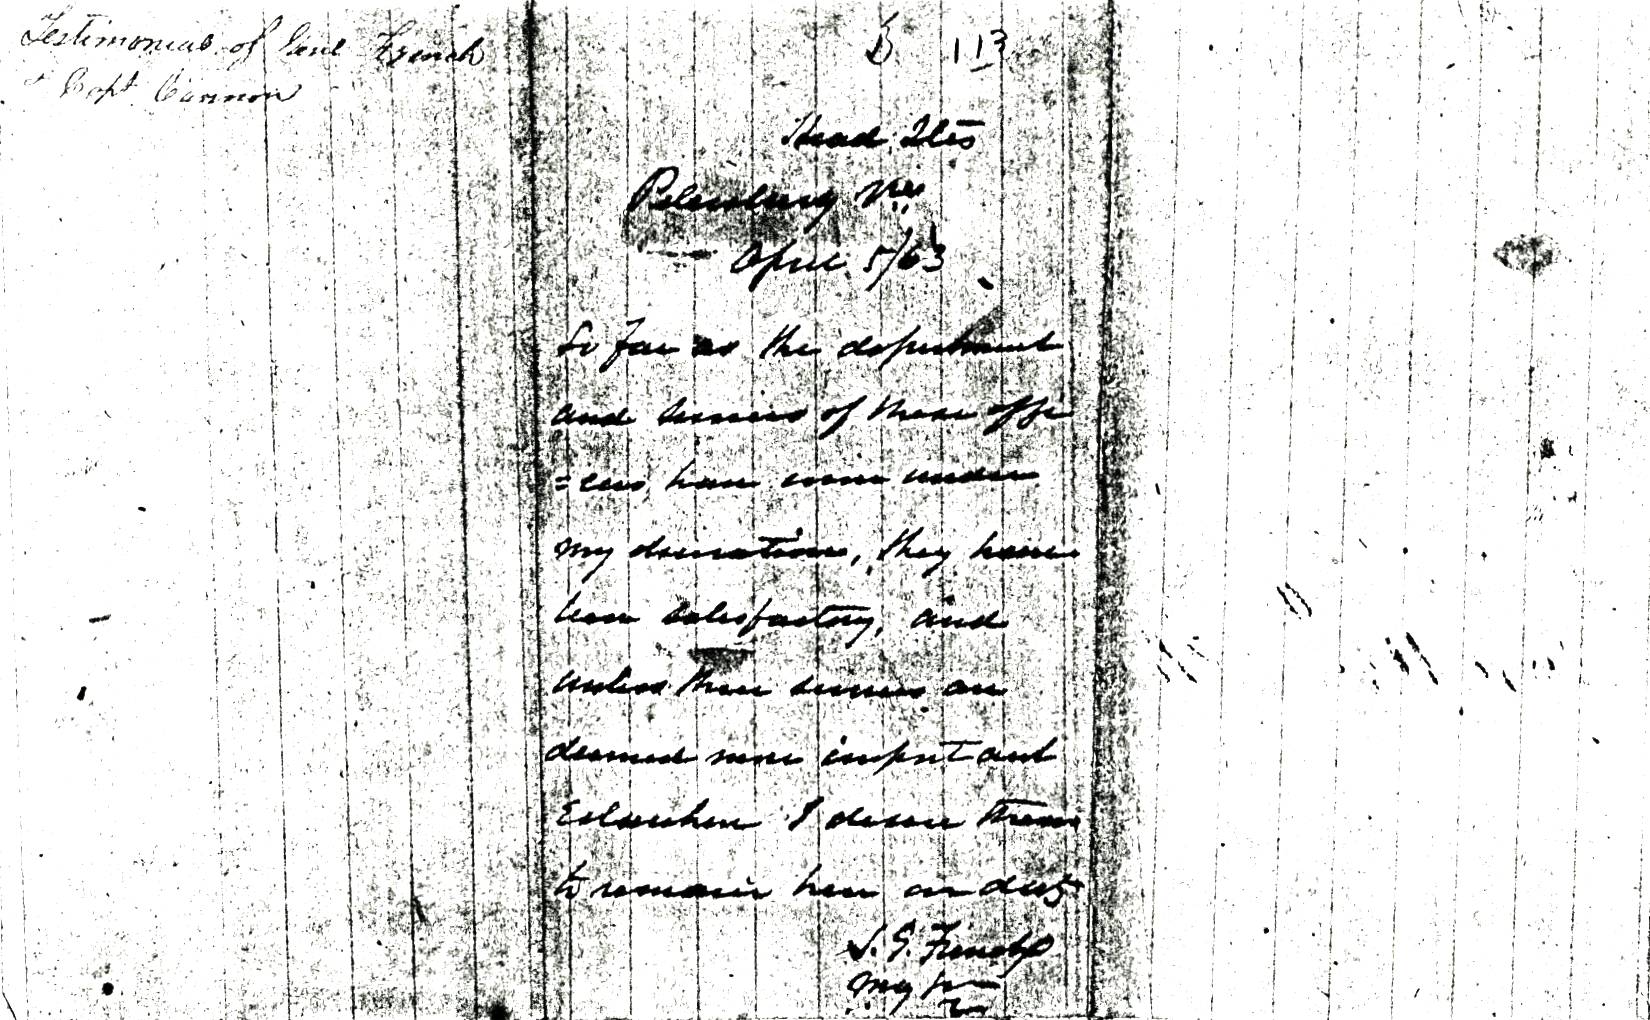 Testimonial of Genl French
& Capt. Cannon
B 113
Head Qtrs
Petersburg Va
April 5/63
So far as the deportment
and services of these offi
=cers, have come under
my observation, they have
been satisfactory, and
unless their services are
deemed more important
Elsewhere I desire them
to remain here on duty
S. G. French
Maj Gen